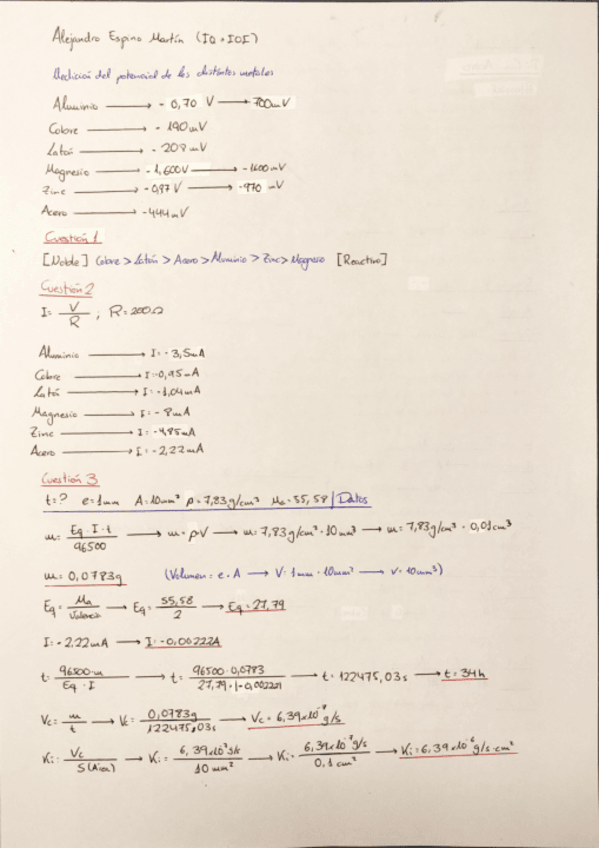 Alejandro Espino Martín (IQ+IOI)
Medición del potencial de los distintos metales
Aluminio → - 0,70 V → 700mV
Cobre → - 190mV
Latón → - 208mV
Magnesio → - 1,600V → -1600 mV
Zinc → -0,97 V → -970 mV
Acero → -444mV
Cuestión 1
[Noble] Cobre > Latón > Acero > Aluminio > Zinc > Magnesio [Reactivo]
Cuestión 2
I= V/R ; R= 200Ω
Aluminio → I= - 3,5mA
Cobre → I=0,95mA
Latón → I= -1,04mA
Magnesio → I= - 8mA
Zinc → I= -4,85mA
Acero → I= -2,22mA
Cuestión 3
t=? e=1mm A=10mm² ρ=7,83g/cm³ Ma=55,58 | Datos
m= Eq·I·t/96500 → m=ρ·V → m=7,83g/cm³·10mm³ → m=7,83g/cm³·0,01cm³
m=0,0783g (Volumen= e·A → V=1mm·10mm² → V=10mm³)
Eq= Ma/Valencia → Eq= 55,58/2 → Eq=27,79
I=-2,22mA → I=-0,00222A
t= 96500·m/Eq·I → t= 96500·0,0783/27,79·|-0,00222| → t=122475,03s → t=34h
Vc= m/t → Vc= 0,0783g/122475,03s → Vc=6,39x10⁻⁷g/s
Ki= Vc/S(Área) → Ki= 6,39x10⁻⁷g/s/10mm² → Ki= 6,39x10⁻⁷g/s/0,1cm² → Ki=6,39x10⁻⁶g/s·cm²